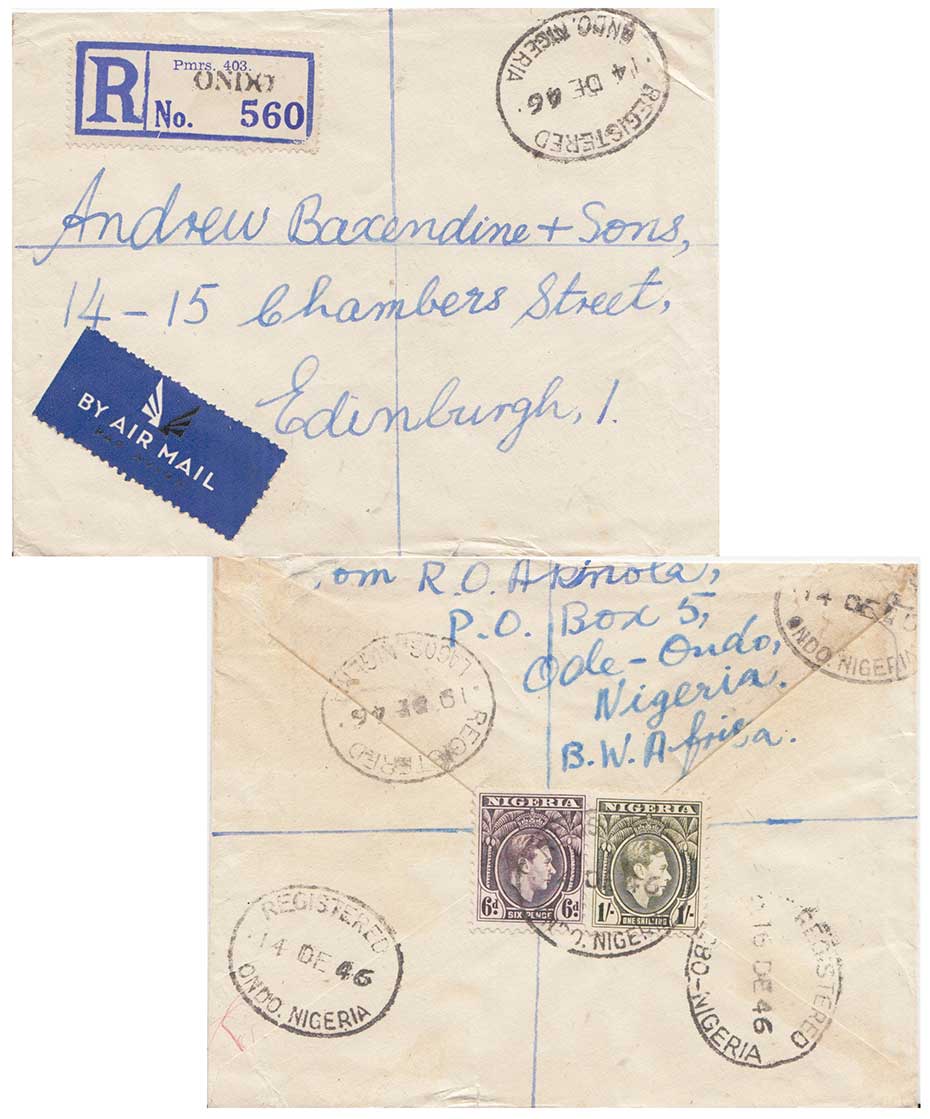 Pmrs. 403.
ONDO
R No. 560
REGISTERED
14 DE 46
ONDO. NIGERIA
Andrew Baxendine + Sons,
14-15 Chambers Street,
Edinburgh, 1.
BY AIR MAIL
PAR AVION
om R.O. Akinola,
P.O. Box 5,
Ode-Ondo,
Nigeria.
B.W. Africa.
14 DE 46
ONDO. NIGERIA
REGISTERED
19 DE 46
LAGOS-NIGERIA
NIGERIA
6d SIX PENCE 6d
NIGERIA
1/- ONE SHILLING 1/-
NIGERIA
REGISTERED
14 DE 46
ONDO. NIGERIA
REGISTERED
16 DE 46
GBO-NIGERIA